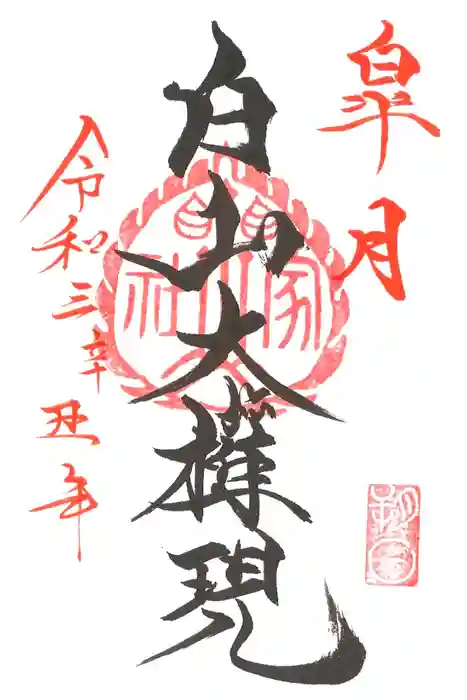 皐月
白山大権現
令和三辛丑年